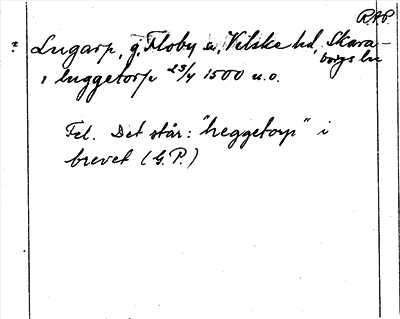 RAP
? Lugarp, g, Floby sn, Vilske hd, Skara-
borgs ln
i luggetorp 23/4 1500 u.o.
Fel. Det står: "heggetorp" i
brevet (G.P.)